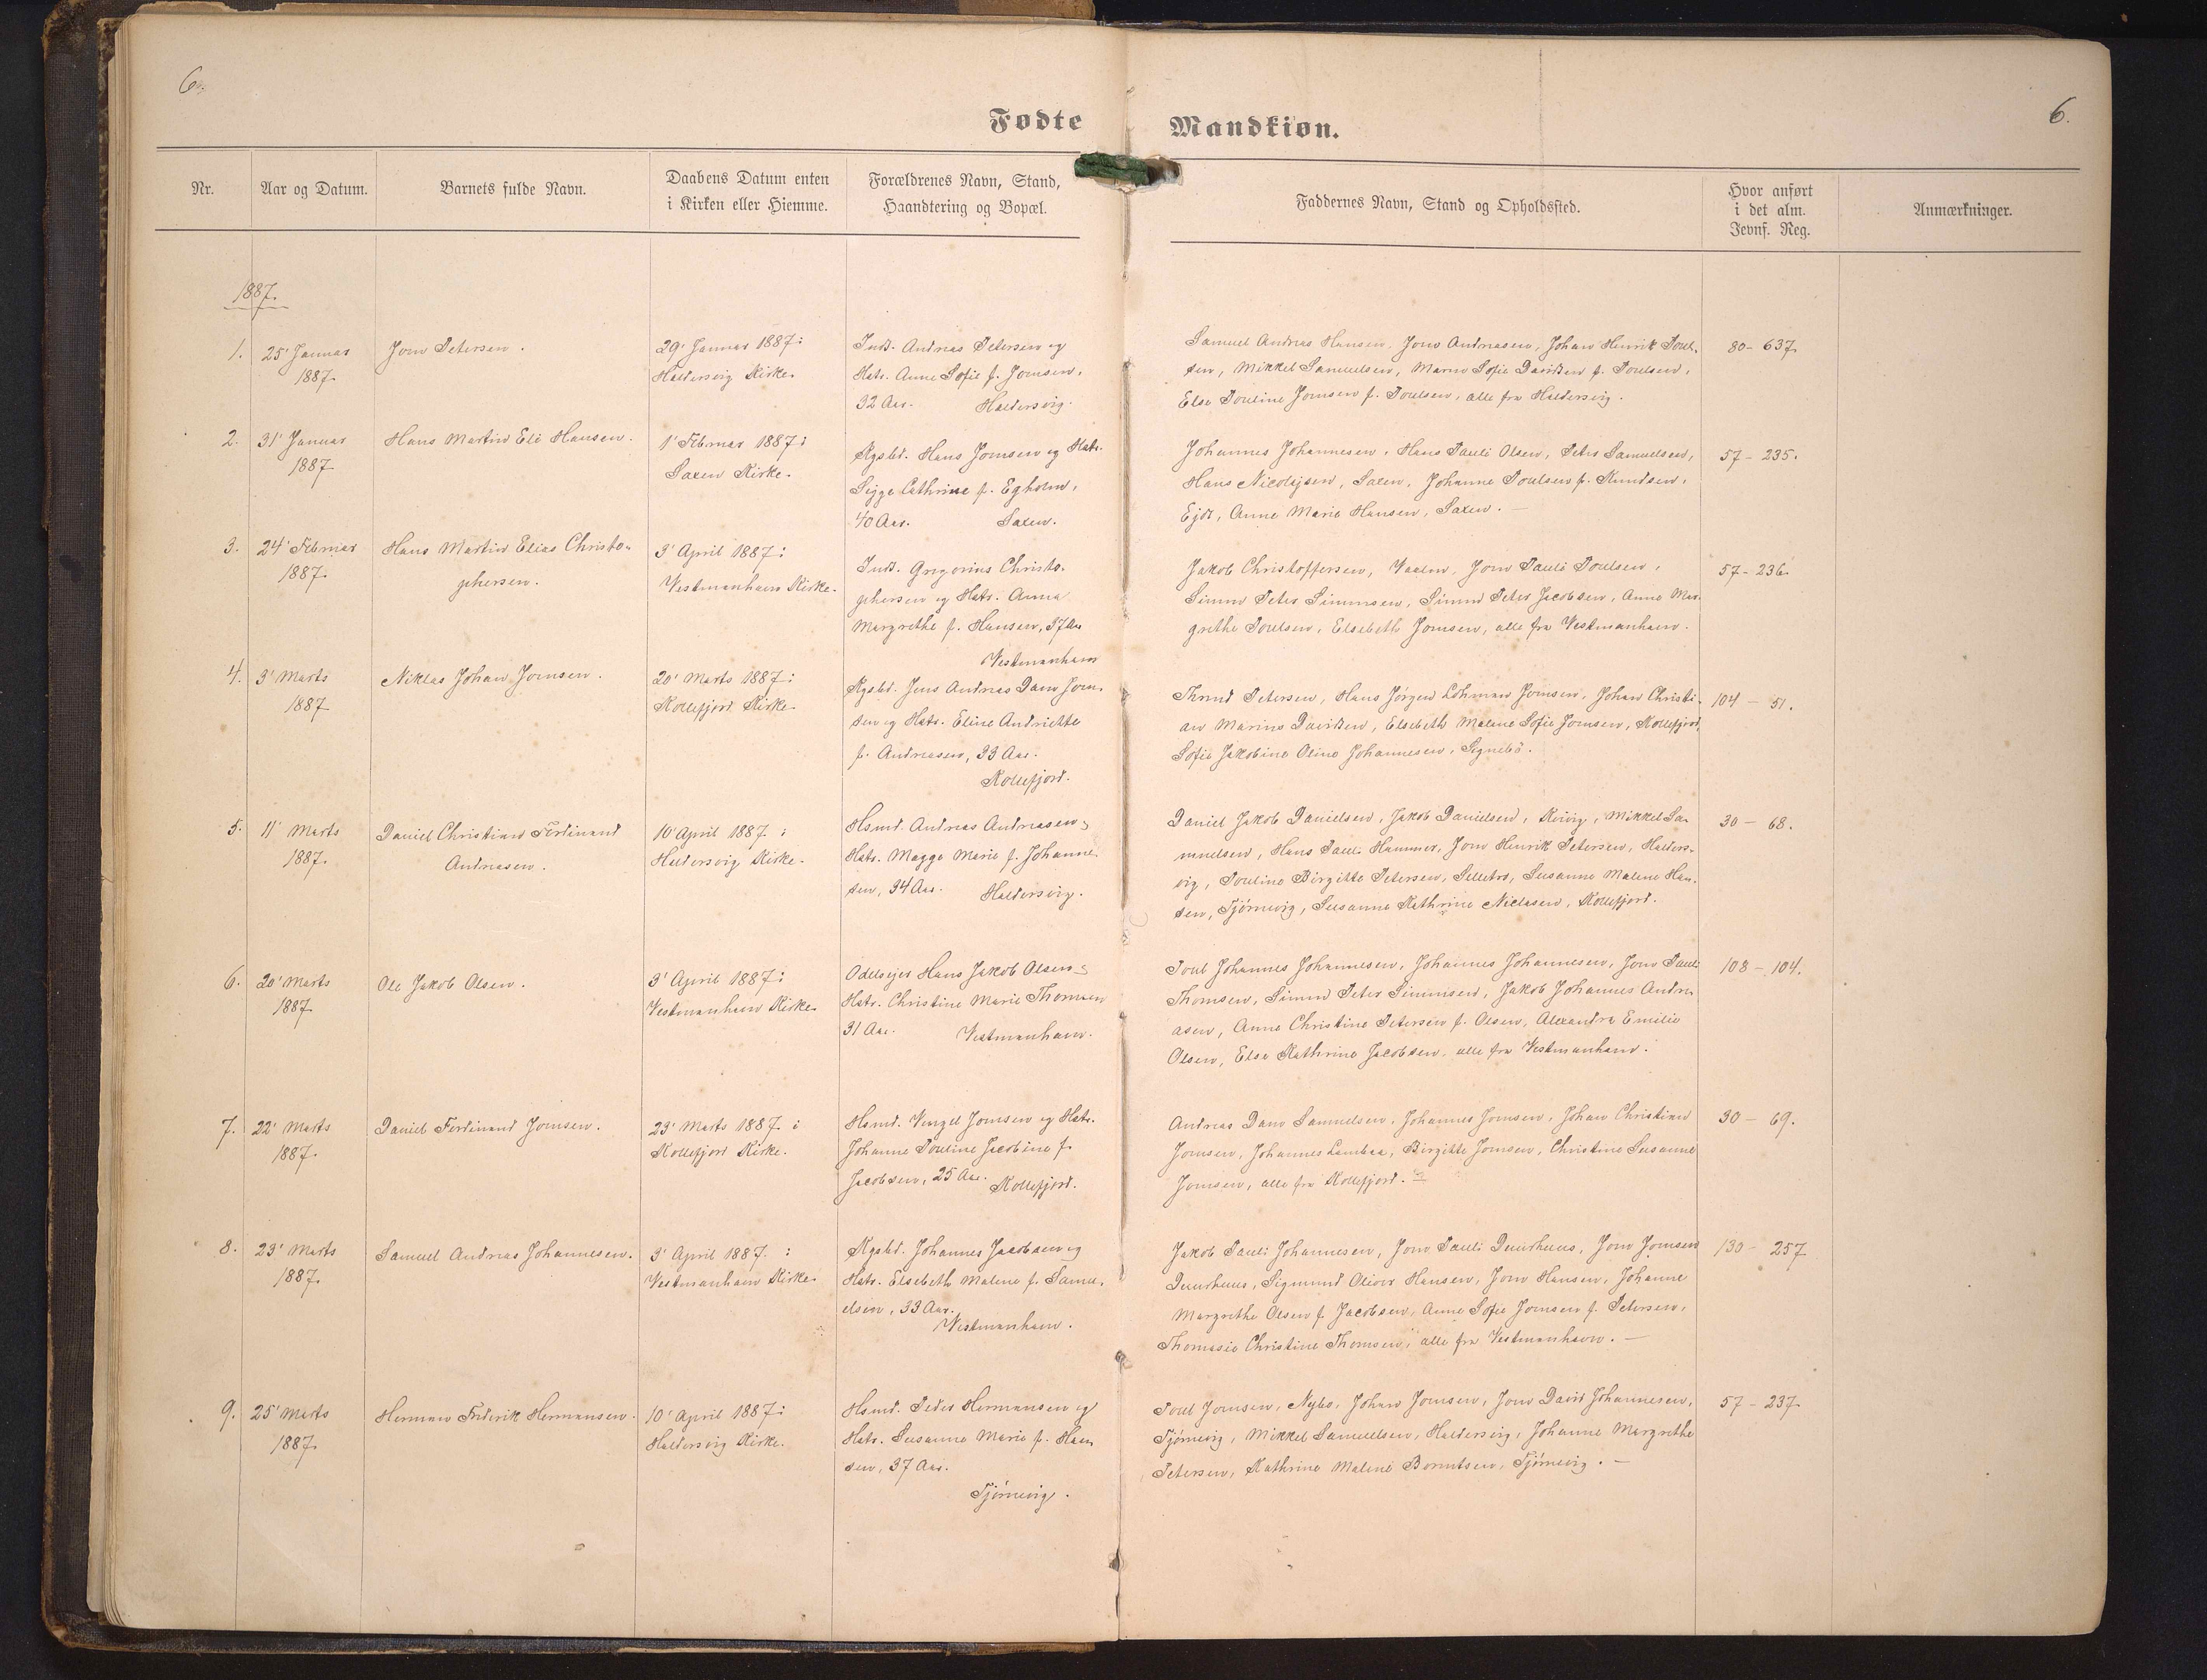 6.
6.
Fødte
Mandkiøn.
Nr.
Aar og Datum.
Barnets fulde Navn.
Daabens Datum enten
i Kirken eller Hiemme.
Forældrenes Navn, Stand,
Haandtering og Bopæl.
Faddernes Navn, Stand og Opholdssted.
Hvor anført
i det alm.
Jevnf. Reg.
Anmærkninger.
1887.
1.
25' Januar
1887.
Joen Petersen.
29' Januar 1887 i
Haldersvig Kirke.
Inds. Andreas Petersen og
Hstr. Anne Sofie f. Joensen,
32 Aar. Haldersvig.
Samuel Andreas Hansen, Joen Andreasen, Johan Henrik Poul-
sen, Mikkel Samuelsen, Maren Sofie Davidsen f. Poulsen,
Else Pouline Joensen f. Poulsen, alle fra Haldersvig.
80 - 637.
2.
31' Januar
1887.
Hans Martin Eli Hansen.
1' Februar 1887 i
Saxen Kirke.
Kgsbd. Hans Joensen og Hstr.
Sigge Cathrine f. Egholm,
40 Aar. Saxen.
Johannes Johannesen, Hans Pauli Olsen, Peter Samuelsen,
Hans Nicolajsen, Saxen, Johanne Poulsen f. Knudsen,
Ejde, Anne Marie Hansen, Saxen. —
57 - 235.
3.
24' Februar
1887.
Hans Martin Elias Christo-
phersen.
3' April 1887 i
Vestmanhavn Kirke.
Inds. Gregorius Christo-
phersen og Hstr. Anna
Margrethe f. Hansen, 37 Aar
Vestmanhavn
Jakob Christoffersen, Joen Pauli Poulsen,
Simun Peter Simunsen, Simun Peter Jacobsen, Anne Mar-
grethe Poulsen, Elsebeth Joensen, alle fra Vestmanhavn.
57 - 236.
4.
3' Marts
1887
Niklas Johan Joensen.
20' Marts 1887 i
Kollefjord Kirke.
Kgsbd. Jens Andreas Dam Joen-
sen og Hstr. Eline Andriette
f. Andreasen, 33 Aar.
Kollefjord.
Thrund Petersen, Hans Jørgen Lohman Joensen, Johan Christi-
an Marius Davidsen, Elsebeth Malene Sofie Joensen, Kollefjord,
Sofie Jakobine Oline Johannesen, Signebö.
104 - 51.
5.
11' Marts
1887.
Daniel Christian Ferdinand
Andreasen.
10' April 1887 i
Haldersvig Kirke.
Hsmd. Andreas Andreasen og
Hstr. Magge Marie f. Johanne-
sen, 34 Aar. Haldersvig.
Daniel Jakob Danielsen, Jakob Danielsen, Kvivig, Mikkel Sa-
muelsen, Hans Pauli Hammer, Joen Henrik Petersen, Halders-
vig, Pouline Birgitte Petersen, Selletræ, Susanne Malene Han-
sen, Tjörnevig, Susanne Kathrine Niclasen, Kollefjord.
30 - 68.
6.
20' Marts
1887.
Ole Jakob Olsen.
3' April 1887 i
Vestmanhavn Kirke.
Odelsejer Hans Jakob Olsen og
Hstr. Christine Marie Thomsen
31 Aar. Vestmanhavn.
Poul Johannes Johannesen, Johannes Johannesen, Joen Pauli
Thomsen, Simun Peter Simunsen, Jakob Johannes Andre-
asen, Anne Christine Petersen f. Olsen, Alexandra Emilie
Olsen, Else Kathrine Jacobsen, alle fra Vestmanhavn.
108 - 104.
7.
22' Marts
1887.
Daniel Ferdinand Joensen.
23' Marts 1887 i
Kollefjord Kirke.
Hsmd. Venzel Joensen og Hstr.
Johanne Pouline Jacobine f.
Jacobsen, 25 Aar. Kollefjord.
Andreas Dam Samuelsen, Johannes Joensen, Johan Christian
Joensen, Johannes Lambaa, Birgitte Joensen, Christine Susanne
Joensen, alle fra Kollefjord.
30 - 69.
8.
23' Marts
1887.
Samuel Andreas Johannesen.
3' April 1887. i
Vestmanhavn Kirke.
Kgsbd. Johannes Jacobsen og
Hstr. Elsebeth Malene f. Samu-
elsen, 33 Aar.
Vestmanhavn.
Jakob Pauli Johannesen, Joen Pauli Duurhuus, Joen Joensen
Duurhuus, Sigmund Oliver Hansen, Joen Hansen, Johanne
Margrethe Olsen f. Jacobsen, Anne Sofie Joensen f. Petersen,
Thomasie Christine Thomsen, alle fra Vestmanhavn. —
130 - 257
9.
25' Marts
1887.
Herman Frederik Hermansen.
10' April 1887 i
Haldersvig Kirke.
Hsmd. Peder Hermansen og
Hstr. Susanne Marie f. Han-
sen, 37 Aar.
Tjörnevig.
Poul Joensen, Nybo, Johan Joensen, Joen David Johannesen,
Tjörnevig, Mikkel Samuelsen, Haldersvig, Johanne Margrethe
Petersen, Kathrine Malene Berentsen, Tjörnevig. —
57 - 237.